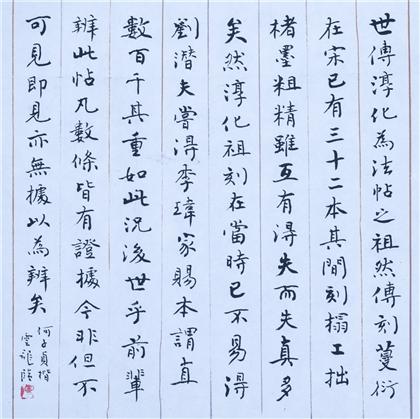 世傳淳化為法帖之祖然傳刻蔓衍
在宋已有三十二本其間刻搨工拙
楮墨粗精雖互有得失而失真多
矣然淳化祖刻在當時已不易得
劉潛夫嘗得李瑋家賜本謂直
數百千其重如此況後世乎前輩
辨此帖凡數條皆有證據今非但不
可見即見亦無據以為辨矣
何子貞楷
雲龍臨